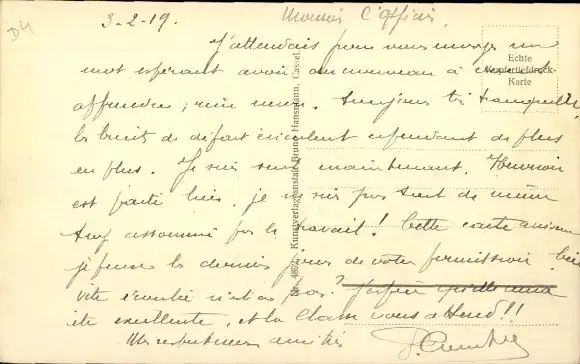 D4
3-2-19.
Monsieur l'Officier,
J'attendais pour vous envoyer un
mot espérant avoir du nouveau à vous
; rien Toujours très tranquille,
les bruits de départ circulent cependant de plus
en plus. Je suis seul maintenant.
est parti hier, je ne suis pas tout de même
trop assommé par le travail! Cette carte arrivera
je pense les derniers jours de votre permission bien
vite écoulée n'est-ce pas?
été excellente, et la classe vous attend!!
Mes respectueuses amitiés
Echte
Kupfertiefdruck-
Karte
Kunstverlagsanstalt Bruno Hansmann, Cassel.